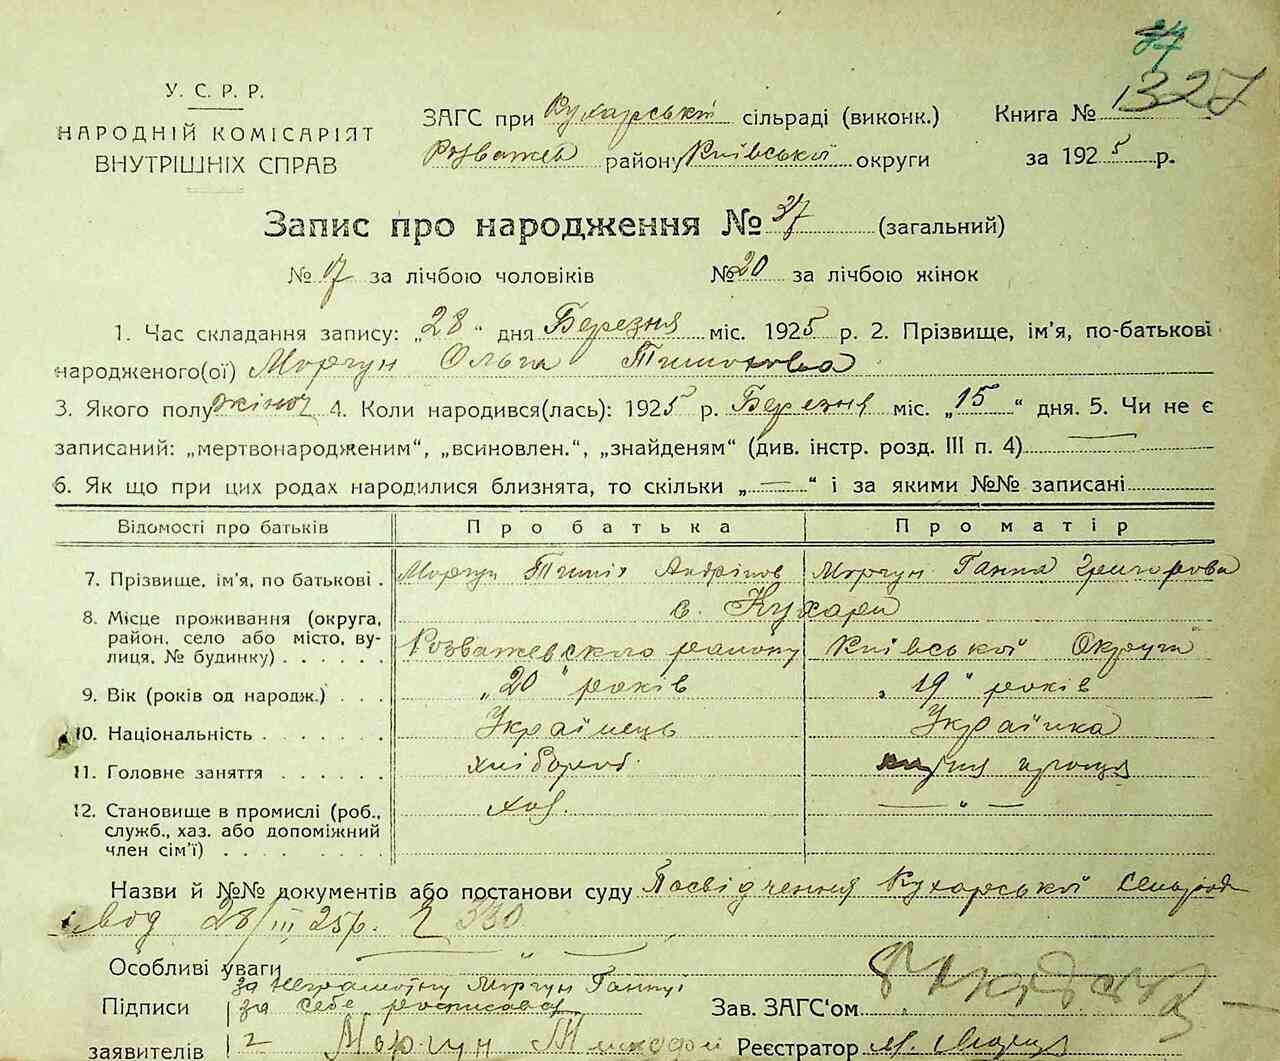 37
1327
У. С. Р. Р.
НАРОДНІЙ КОМІСАРІЯТ
ВНУТРІШНІХ СПРАВ
ЗАГС при Кухарській сільраді (виконк.) Книга №
Розважев району Київської округи за 1925 р.
Запис про народження № 37 (загальний)
№ 17 за лічбою чоловіків № 20 за лічбою жінок
1. Час складання запису: „28" дня Березня міс. 1925 р. 2. Прізвище, ім'я, по-батькові
народженого(ої) Моргун Ольга Тимохова
3. Якого полу жіноч 4. Коли народився(лась): 1925 р. Березня міс. „15" дня. 5. Чи не є
записаний: „мертвонародженим“, „всиновлен.“, „знайденям“ (див. інстр. розд. III п. 4) —
6. Як що при цих родах народилися близнята, то скільки „—“ і за якими №№ записані
Відомості про батьків Про батька Про матір
7. Прізвище, ім'я, по батькові . Моргун Тиміх Андріпов Моргун Ганна Григорова
8. Місце проживання (округа, с. Кухари
район, село або місто, ву-
лиця, № будинку) . . . . . . Розважевского району Київської Округи
9. Вік (років од народж.) . . . „20" років „19" років
10. Національність . . . . . . . Українець Українка
11. Головне заняття . . . . . . хлібороб
12. Становище в промислі (роб., хаз. — " —
служб., хаз. або допоміжний
член сім'ї) . . . . . . . .
Назви й №№ документів або постанови суду Посвідчення Кухарської Сельради
від 28/III 25р. № 330
Особливі уваги — " —
за неграмотну Моргун Ганну
Підписи за себе росписався Зав. ЗАГС‘ом
заявителів 2 Моргун Тимофей Реєстратор